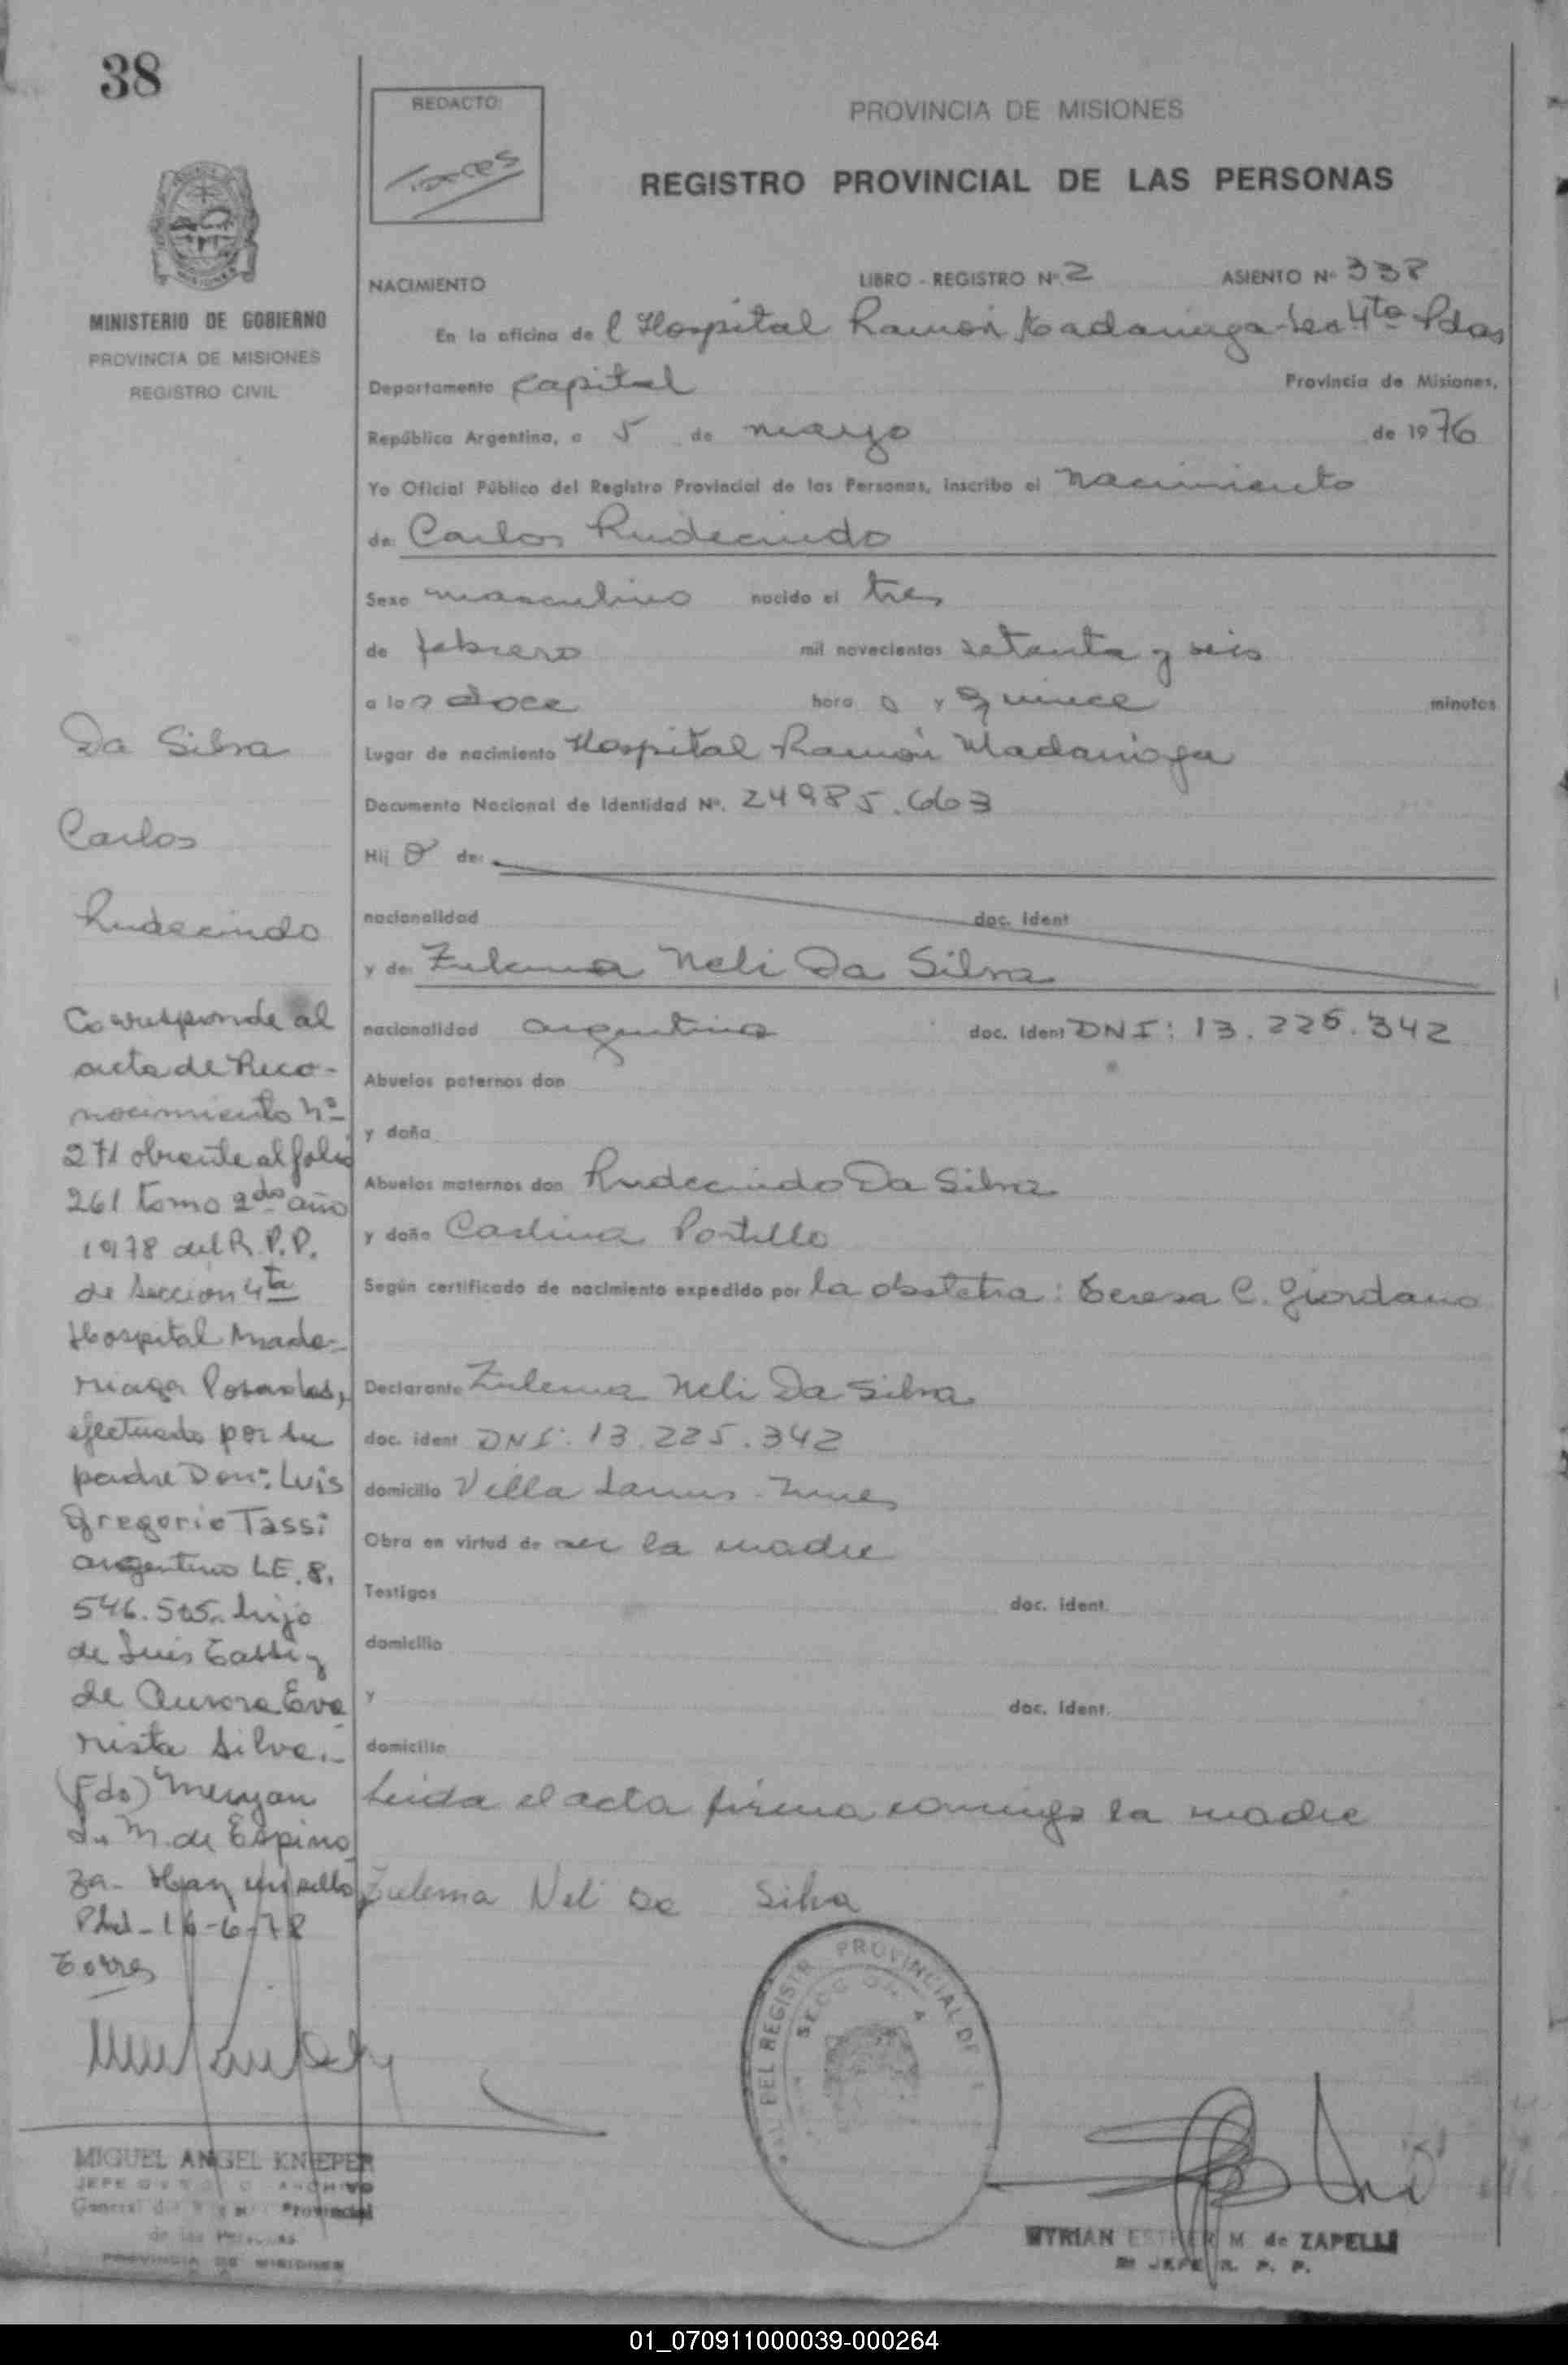 38
REDACTO:
Torres
PROVINCIA DE MISIONES
REGISTRO PROVINCIAL DE LAS PERSONAS
MINISTERIO DE GOBIERNO
PROVINCIA DE MISIONES
REGISTRO CIVIL
NACIMIENTO LIBRO - REGISTRO Nº 2 ASIENTO Nº 338
En la oficina de l Hospital Ramón Madariaga Sec 4ta Pdas
Departamento Capital Provincia de Misiones,
República Argentina, a 5 de mayo de 1976
Yo Oficial Público del Registro Provincial de las Personas, inscribo el nacimiento
de: Carlos Rudecindo
Sexo masculino nacido el tres
de febrero mil novecientos setenta y seis
a las doce hora s y quince minutos
Lugar de nacimiento Hospital Ramón Madariaga
Documento Nacional de Identidad Nº. 24985.663
Hij o de:
nacionalidad doc. ident
y de: Zulema Neli Da Silva
nacionalidad argentina doc. ident DNI: 13.225.342
Abuelos paternos don
y doña
Abuelos maternos don Rudecindo Da Silva
y doña Carlina Portillo
Según certificado de nacimiento expedido por la obstetra: Teresa C. Giordano
Declarante Zulema Neli Da Silva
doc. ident DNI: 13.225.342
domicilio Villa Lanus
Obra en virtud de ser la madre
Testigos doc. ident.
domicilio
y doc. ident.
domicilio
Leida el acta firma conmigo la madre
Zulema Neli Da Silva
Da Silva
Carlos
Rudecindo
Corresponde al
acta de Reco-
nocimiento Nº
271 obrante al folio
261 tomo 2do año
1978 del R.P.P.
de Sección 4ta
Hospital Mada-
riaga Posadas,
efectuado por su
padre Don: Luis
Gregorio Tassi
argentino LE. 8.
546.505. hijo
de Luis Tassi y
de Aurora Eva-
rista Silva.-
(Fdo) Meryan
M. de Espino
za- Hay un sello
Pdas-16-6-78
Torres
MIGUEL ANGEL KNIEPER
JEFE ARCHIVO
General del Provincial
de las Personas
PROVINCIA DE MISIONES
DEL REGISTRO PROVINCIAL DE
SECCION 4
MYRIAN ESTHER M de ZAPELLI
JEFE R. P. P.
01_070911000039-000264